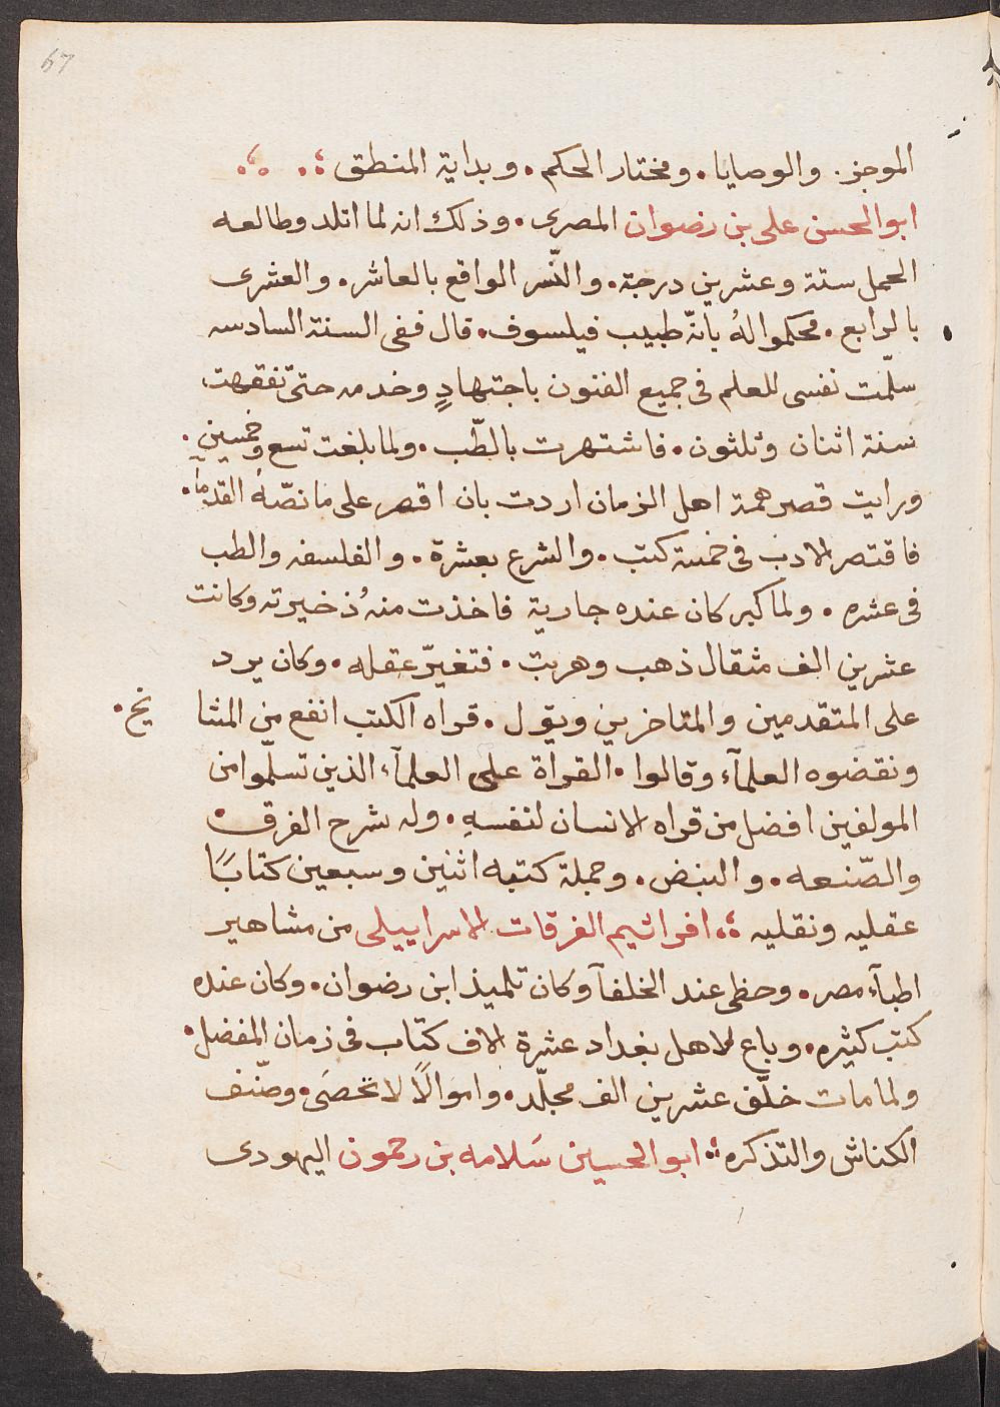 67
الموجز. والوصايا. ومختار الحكم. وبداية المنطق
ابوالحسن على بن رضوان المصرى. وذلك انه لما اتلد وطالعه
الحمل ستة وعشرين درجة. والنّسر الواقع بالعاشر. والعشرى
بالرابع. محكموا لهُ بانّه طبيب فيلسوف. قال ففى السنة السادسه
سلّمت نفسى للعلم فى جميع الفنون باجتهادٍ وخدمه حتىّ تفقهت
سنة اثنان وثلثون. فاشتهرت بالطّب. ولما بلغت تسع وخمسين.
ورايت قصر همة اهل الزمان اردت بان اقصر على ما نصّهُ القدمآ.
فاقتصر الادب فى خمسة كتب. والشرع بعشرة. والفلسفه والطب
فى عشره. ولما كبر كان عنده جارية فاخذت منهُ ذخيرته وكانت
عشرين الف مثقال ذهب وهربت. فتغيّر عقله. وكان يرد
على المتقدمين والمتاخرين ويقول. قراه الكتب انفع من المشا يخ.
ونقضوه العلمآء وقالوا. القراة على العلمآء الذين تسلّموا من
المولفين افضل من قراه الانسان لنفسهِ. وله شرح الفرق.
والصّنعه. والنبض. وجملة كتبه اثنين وسبعين كتابًا
عقليه ونقليه افرائيم الفرقات الاسراييلى من مشاهير
اطبآء مصر. وحظى عند الخلفآ وكان تلميذ ابن رضوان. وكان عنده
كتب كثيره. وباع لاهل بغداد عشرة الاف كتاب فى زمان المفضل.
ولما مات خلّف عشرين الف مجلّد. واموالًا لا تحصَى. وصنّف
الكناش والتذكره ابوالحسين سَلامه بن رحمون اليهودى